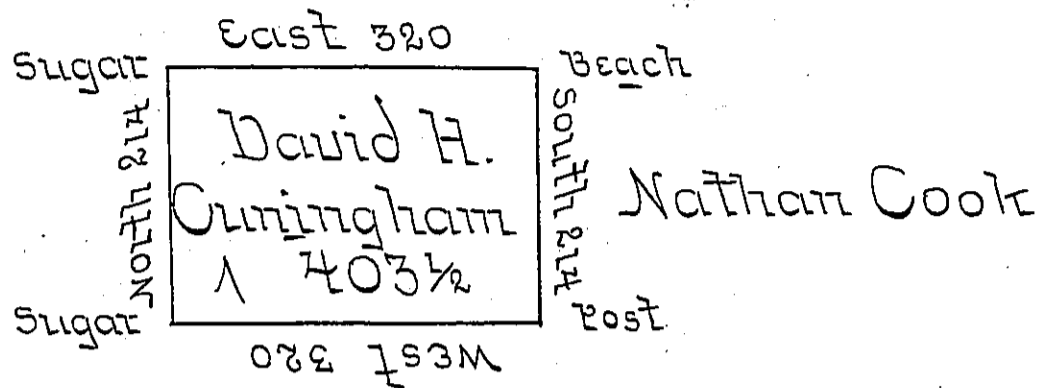 East 320
Sugar
Beach
North 214
David H.
Cuningham
1 403½
South 214
Nathan Cook
Sugar
Post
West 320